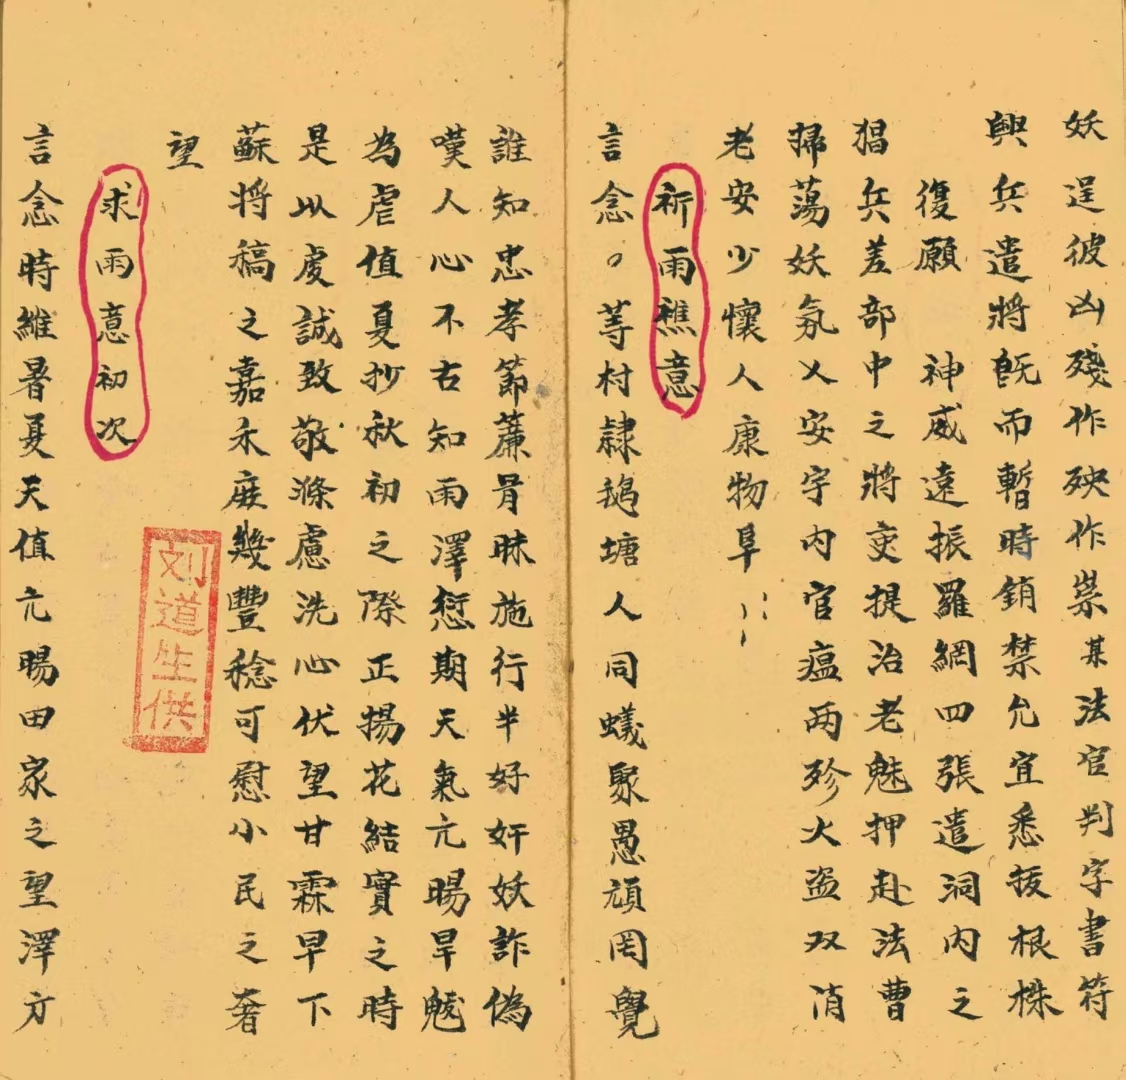 妖逞彼凶殘作殃作祟某法官判字書符
興兵遣將旣而暫時銷禁允宜悉拔根株
復願　神威遠振羅網四張遣洞内之
猖兵差部中之將吏提治老魅押赴法曹
掃蕩妖氛乂安宇内官瘟兩殄火盗双消
老安少懷人康物阜
祈雨醮意
言念。等村隷鵝塘人同蟻聚愚頑罔覺
誰知忠孝節廉肯昧施行半好奸妖詐偽
嘆人心不古知雨澤愆期天氣亢暘旱魃
為虐值夏抄秋初之際正揚花結實之時
是以虔誠致敬滌慮洗心伏望甘霖早下
蘇將稿之嘉禾庻幾豐稔可慰小民之奢
望
求雨意初次
言念時維暑夏天值亢暘田家之望澤方
刘道生供